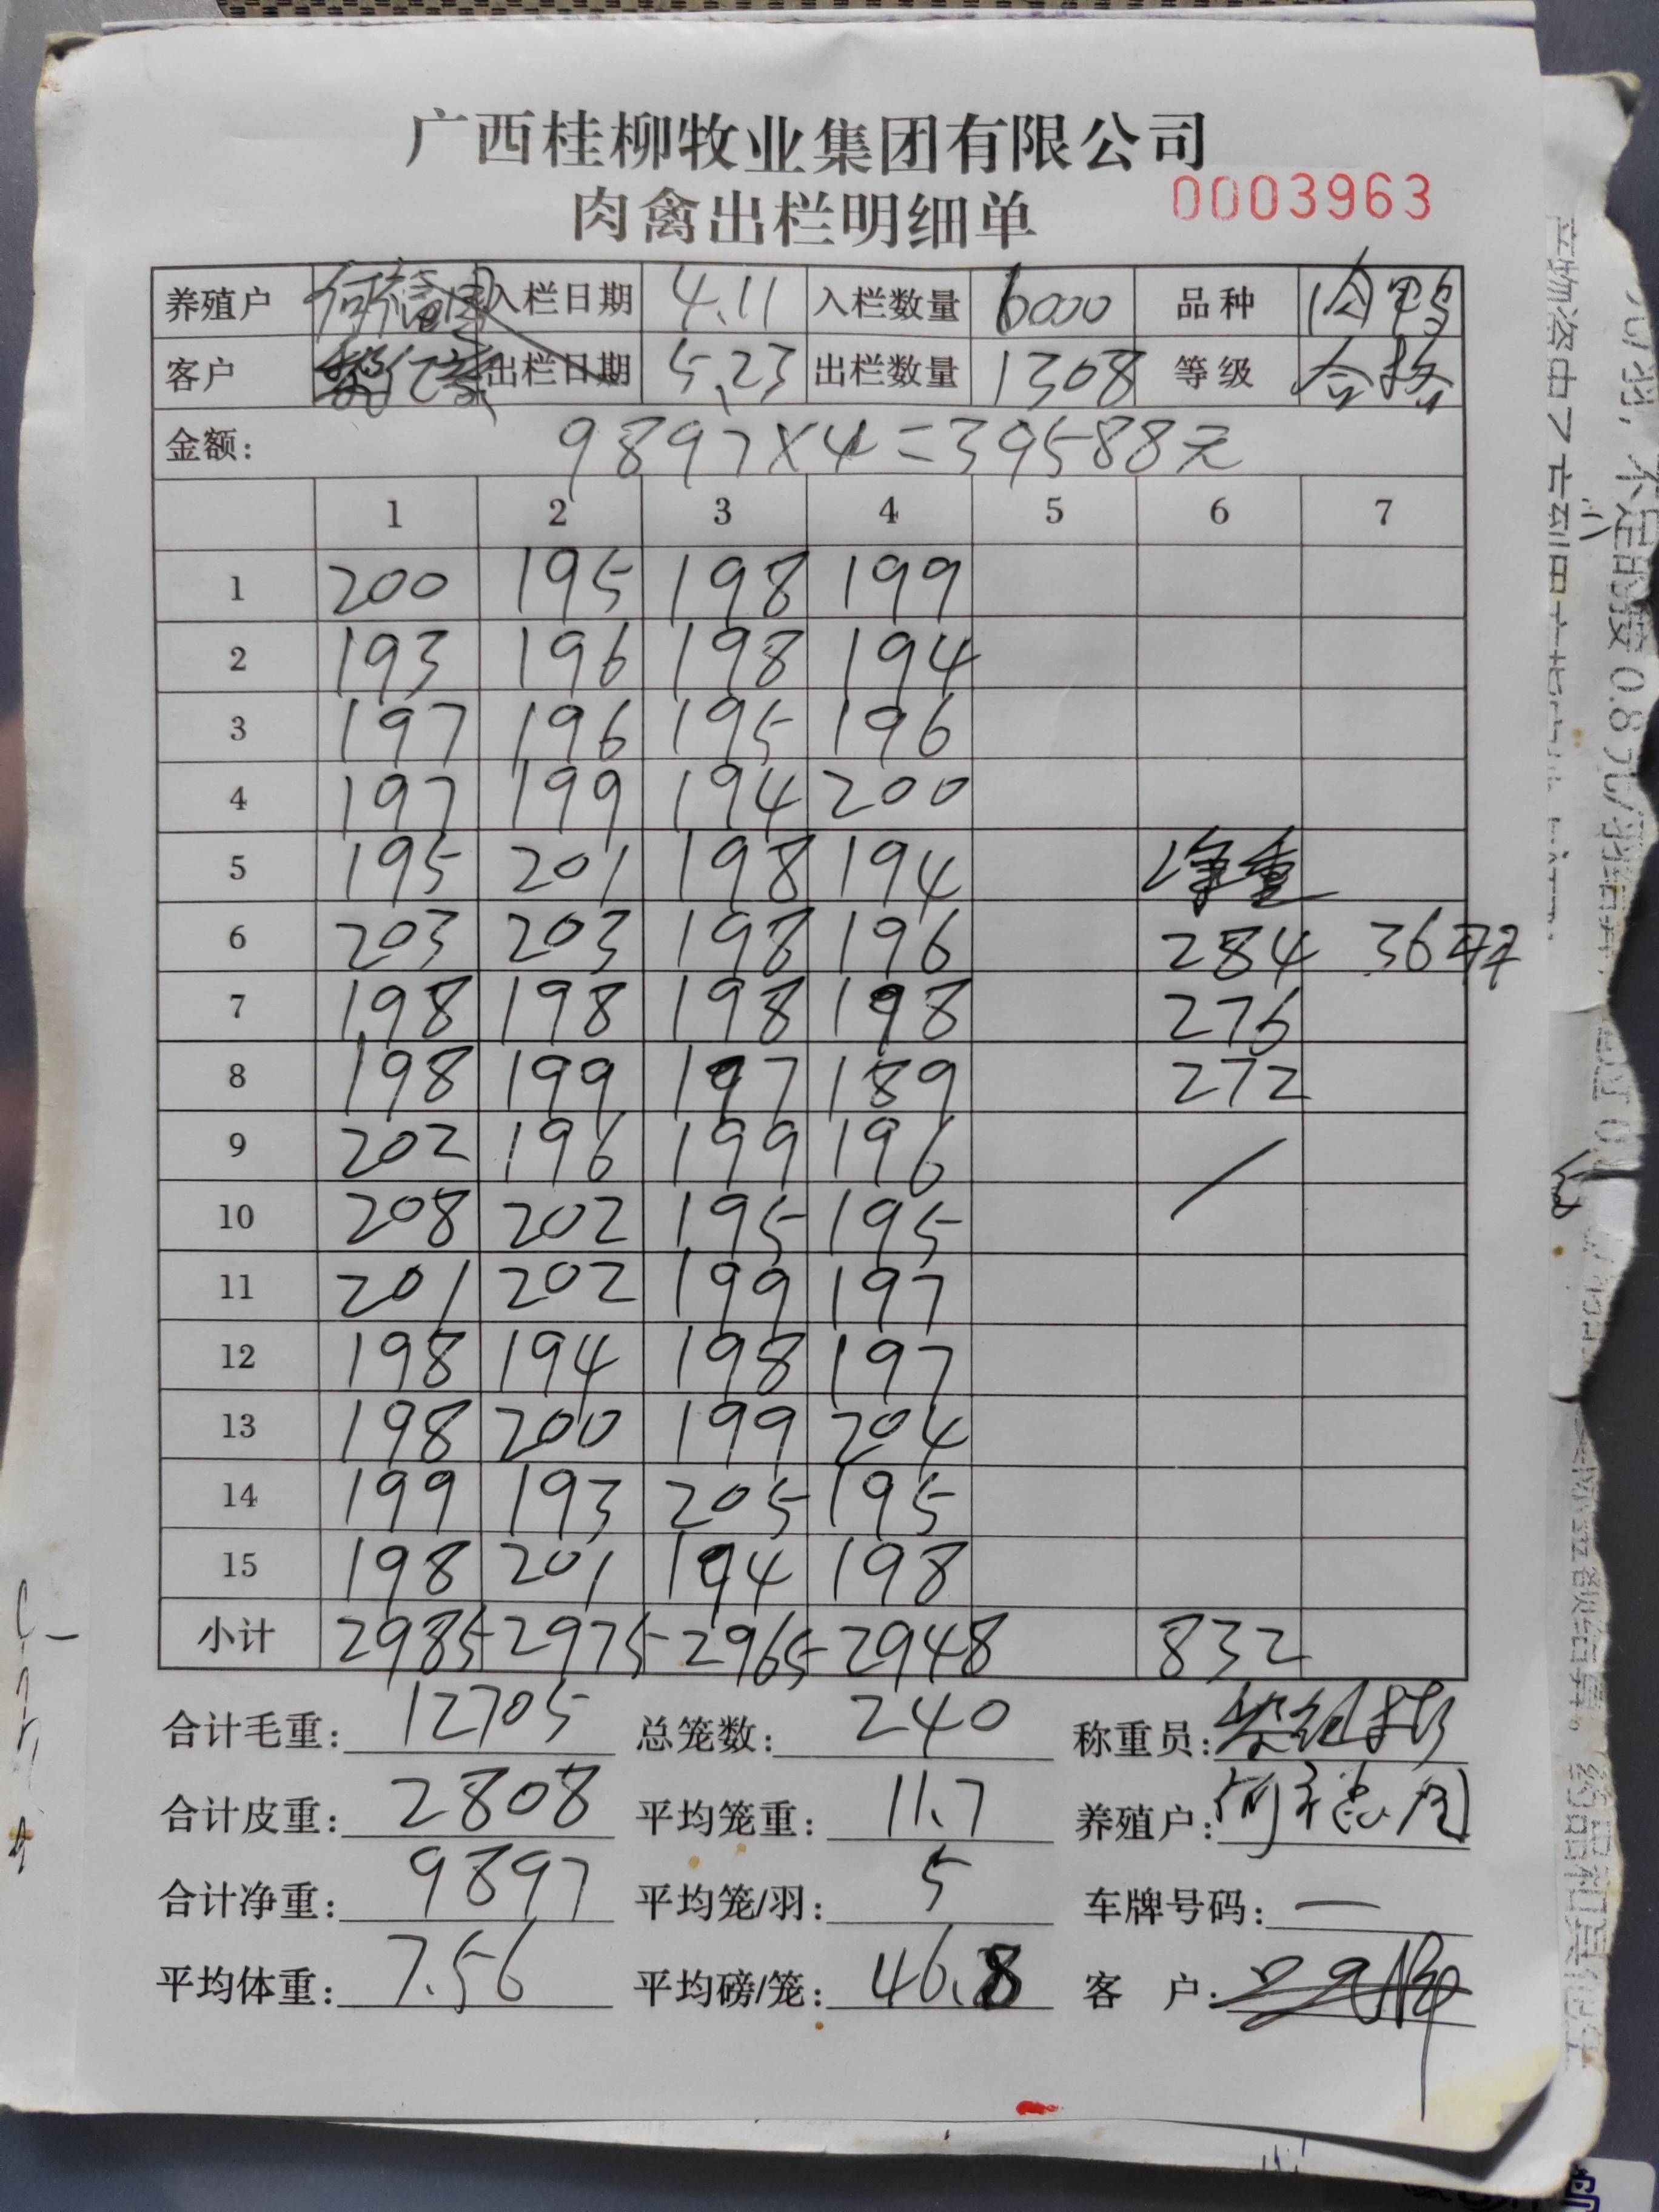 广西桂柳牧业集团有限公司
肉禽出栏明细单
0003963
养殖户 入栏日期 4.11 入栏数量 6000 品种 肉鸭
客户 出栏日期 5.23 出栏数量 1308 等级 合格
金额: 9897×4=39588元
1 2 3 4 5 6 7
1 200 195 198 199
2 193 196 198 194
3 197 196 195 196
4 197 199 194 200
5 195 201 198 194 净重
6 203 203 198 196 284 36羽
7 198 198 198 198 276
8 198 199 197 189 272
9 202 196 199 196
10 208 202 195 195
11 201 202 199 197
12 198 194 198 197
13 198 200 199 204
14 199 193 205 195
15 198 201 194 198
小计 2985 2975 2965 2948 832
合计毛重: 12705 总笼数: 240 称重员:
合计皮重: 2808 平均笼重: 11.7 养殖户:
合计净重: 9897 平均笼/羽: 5 车牌号码: —
平均体重: 7.56 平均磅/笼: 46.8 客 户: